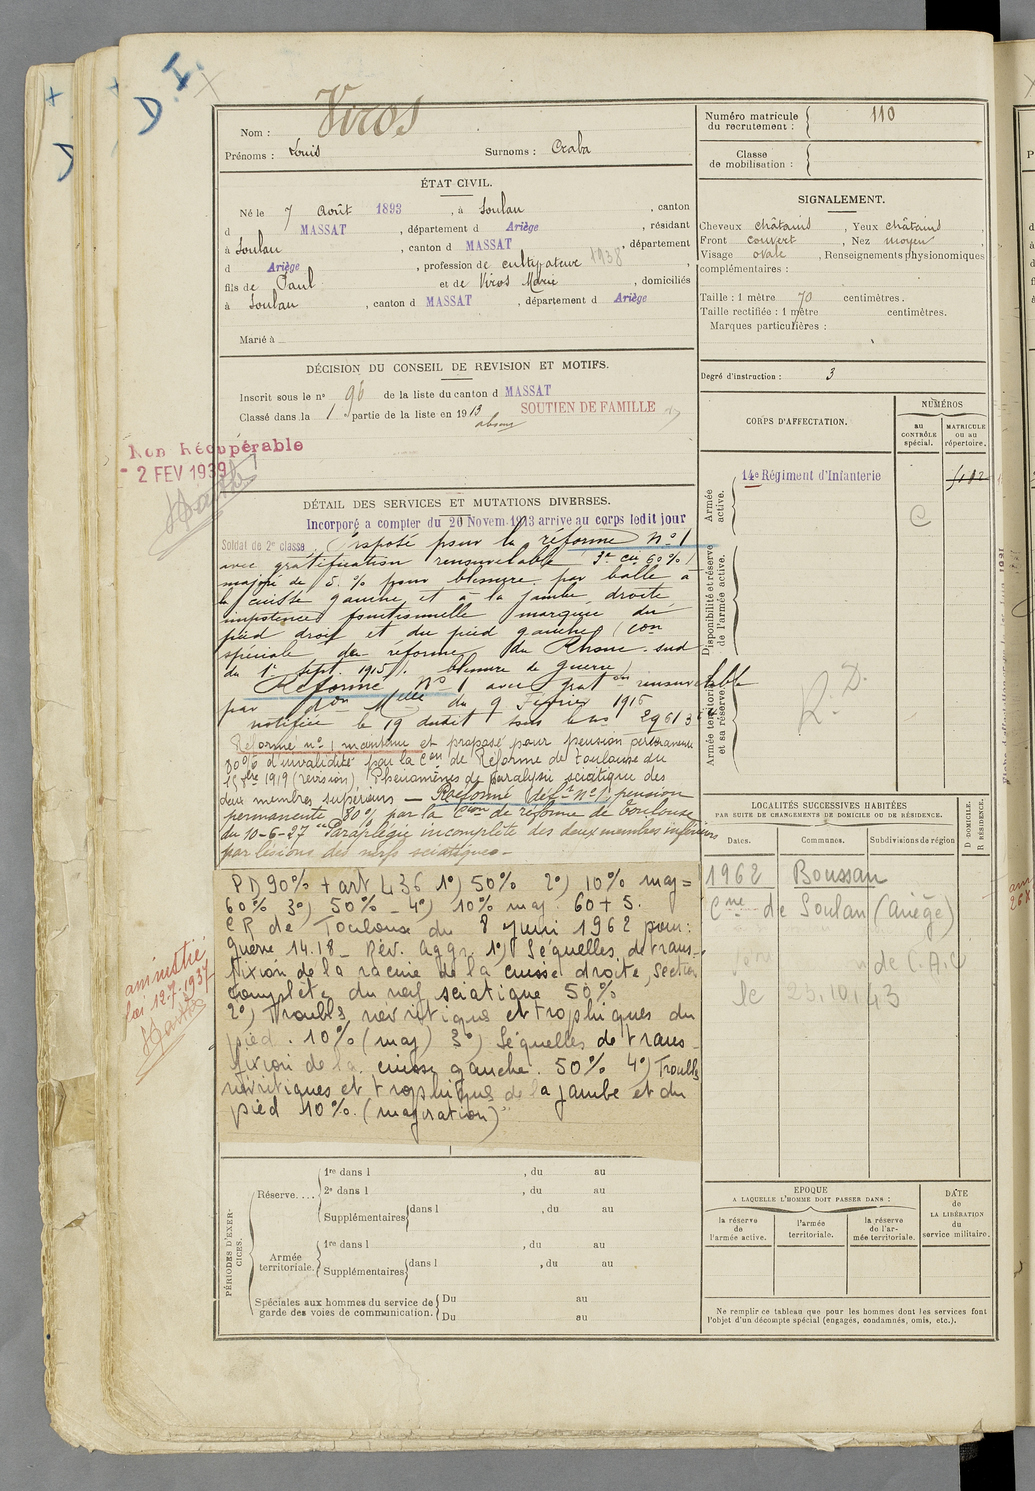 D. I.
Nom : Viros
Prénoms : Louis Surnoms : Craba
ÉTAT CIVIL.
Né le 7 Août 1893, à Soulan, canton
d MASSAT, département d Ariège, résidant
à Soulan, canton d MASSAT, département
d Ariège, profession de cultivateur 1938
fils de Paul et de Viros Marie, domiciliés
à Soulan, canton d MASSAT, département d Ariège
Marié à
DÉCISION DU CONSEIL DE REVISION ET MOTIFS.
Inscrit sous le n° 96 de la liste du canton d MASSAT
Classé dans la 1 partie de la liste en 1913 SOUTIEN DE FAMILLE
absent
Non Récupérable
- 2 FEV 1939
DÉTAIL DES SERVICES ET MUTATIONS DIVERSES.
Incorporé a compter du 20 Novem. 1913 arrive au corps ledit jour
Soldat de 2e classe. Proposé pour la réforme n° 1
avec gratification renouvelable 3e cie 60 % )
majoré de 5 % pour blessure par balle à
la cuisse gauche et à la jambe droite
impotence fonctionnelle marquée du
pied droit et du pied gauche (con
spéciale de réforme du Rhone sud
du 1er Sept. 1915). blessure de guerre)
Réformé N° 1 avec grat on renouvelable
par Don Melle du 9 Février 1916
notifiée le 19 dudit sous le no 29613
Réformé n° 1 maintenu et proposé pour pension permanente
80% d'invalidité par la Con de Réforme de Toulouse du
bre 1919 (révision) Phénomènes de paralysie sciatique des
deux membres supérieurs — Réformé déf.t n° 1, pension
permanente 80% par la Cion de réforme de Toulouse
du 10-6-27 "Paraplégie incomplète des deux membres inférieurs
par lésions des nerfs sciatiques —
PD 90% + art L 36 1°) 50% 2°) 10% maj =
60% 3°) 50% - 4°) 10% maj 60 + 5.
CR de Toulouse du 8 Juin 1962 pour :
guerre 14.18 - Rév. aggr. 1°) Séquelles de trans-
fixion de la racine de la cuisse droite, section
complète du nerf sciatique 50%
2°) Troubles névritiques et trophiques du
pied . 10% (maj) 3°) Séquelles de trans-
fixion de la cuisse gauche. 50% 4°) Troubles
névritiques et trophiques de la jambe et du
pied 10%. (majoration)"
amnistié
loi 12.7.1937
PÉRIODES D'EXER-
CICES.
Réserve.... 1re dans l , du au
2e dans l , du au
Supplémentaires dans l , du au
Armée
territoriale. 1re dans l , du au
Supplémentaires dans l , du au
Spéciales aux hommes du service de
garde des voies de communication. Du au
Du au
Numéro matricule
du recrutement : 110
Classe
de mobilisation :
SIGNALEMENT.
Cheveux châtains, Yeux châtains,
Front couvert, Nez moyen,
Visage ovale, Renseignements physionomiques
complémentaires :
Taille : 1 mètre 70 centimètres.
Taille rectifiée : 1 mètre centimètres.
Marques particulières :
Degré d'instruction : 3
CORPS D'AFFECTATION.
NUMÉROS
au
CONTRÔLE
spécial.
MATRICULE
OU AU
répertoire.
Armée
active.
14e Régiment d'Infanterie
C
Disponibilité et réserve
de l'armée active.
Armée territoriale
et sa réserve.
R. D.
LOCALITÉS SUCCESSIVES HABITÉES
PAR SUITE DE CHANGEMENTS DE DOMICILE OU DE RÉSIDENCE.
Dates. Communes. Subdivisions de région
D DOMICILE.
R RÉSIDENCE.
1962 Boussan
Cne de Soulan (Ariège)
de C.A.C
le 25.10.43
EPOQUE
A LAQUELLE L'HOMME DOIT PASSER DANS :
la réserve
de
l'armée active.
l'armée
territoriale.
la réserve
de l'ar-
mée territoriale.
DATE
de
LA LIBÉRATION
du
service militaire.
Ne remplir ce tableau que pour les hommes dont les services font
l'objet d'un décompte spécial (engagés, condamnés, omis, etc.).